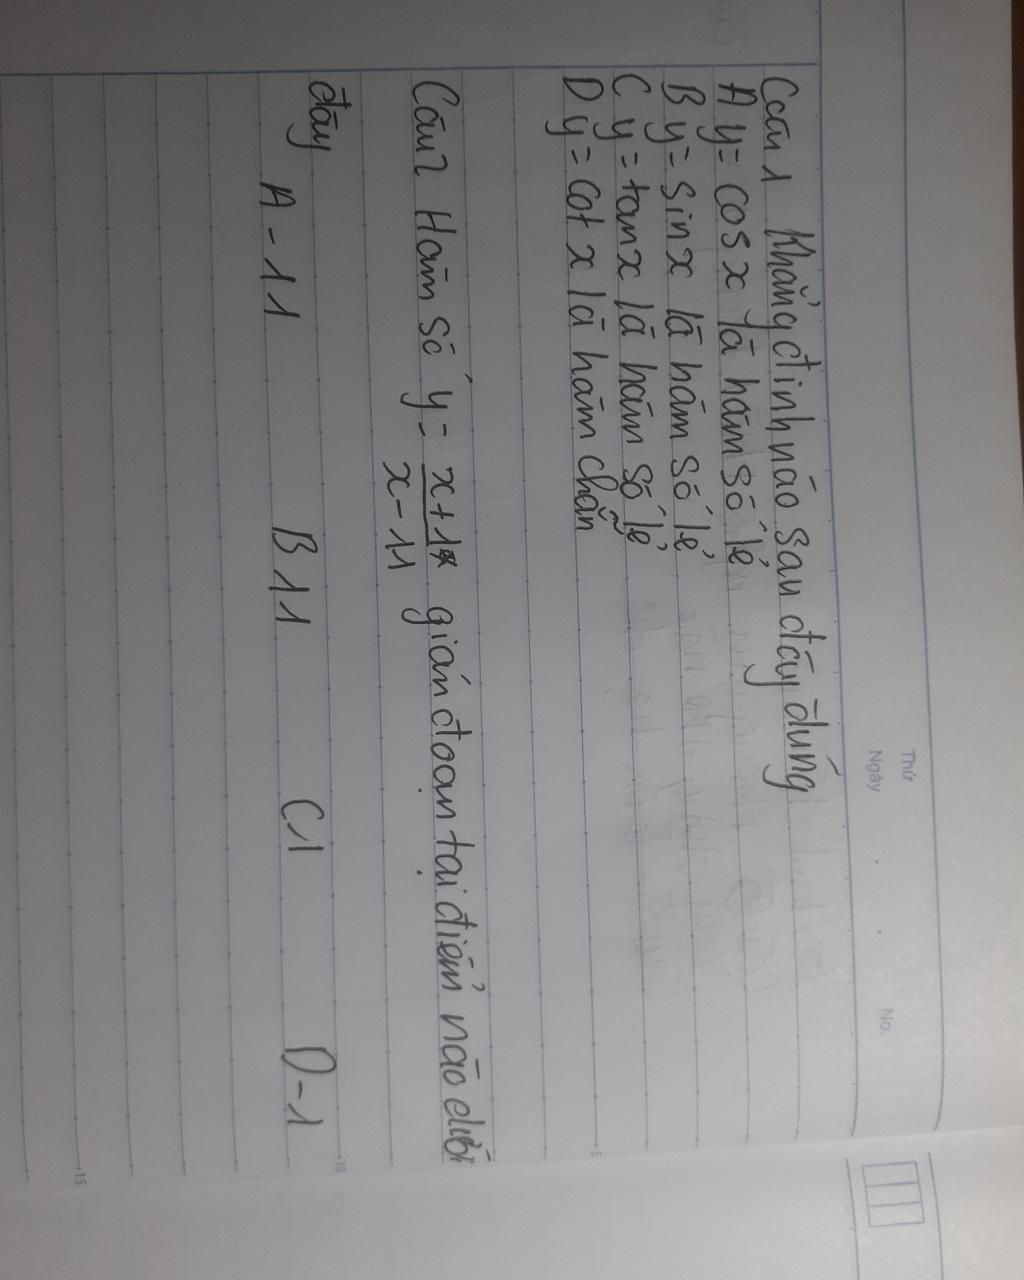 Thứ
Ngày
No.
Câu 1 Khẳng định nào sau đây đúng
A y = cos x là hàm số lẻ
B y = sin x là hàm số lẻ
C y = tan x là hàm số lẻ
D y = cot x là hàm chẵn
5
Câu 2 Hàm số y = x+1 / x-11 gián đoạn tại điểm nào dưới
đây
10
A -11 B 11 C 1 D -1
15